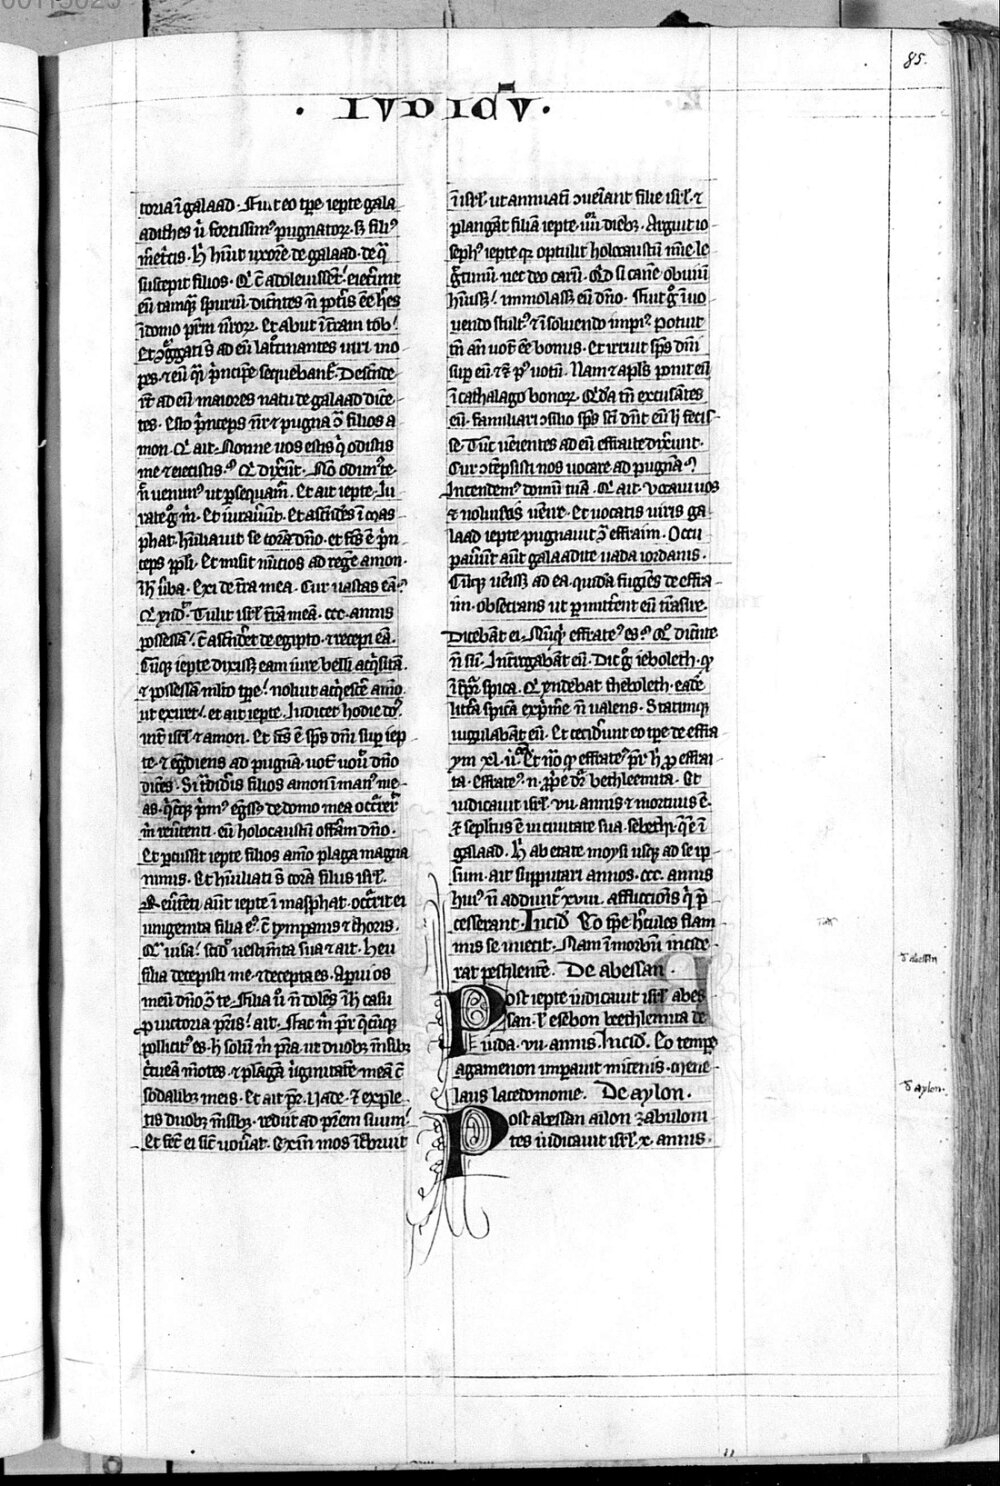 85.
· IVDICŪ ·
toria ī galaad. Fuit eo tp̄e iepte gala
adithes u̅ fortissim9 pugnator. s̅ fili9
m̅etc̅is. h̅ hūit uxorē de galaad. de q̄
suscepit filios. Q̅ c̄ adoleuissēt: eiecerūt
eū tamq̄ spuriū. dicētes n̄ pot̄is eē h̄es
ī domo p̄ris n̄ror. Et abiit ī t̄ram tob.
Et ɔg̅gati s̄ ad eū lat̄cinantes uiri ino
pes. ⁊ eū q̄i p̄ncipē sequebant̄. Descēde
r̄t ad eū maiores natu de galaad dicē
tes. Esto p̄nceps n̄r ⁊ pugna ɔ̄ filios a
mon. Q̅ ait. Nonne uos estis q̄ odistis
me ⁊ eiecistis. Q̅ dixer̄t. Nō odim9 te.
n̄ uenim9 ut p̄sequam̄. Et ait iepte. Iu
rate g̅ m̄. Et iurauer̄t. Et ascēdēs ī mas
phat. humiliauit se corā dn̄o. et fc̄s ē p̄n
ceps pp̄li. Et misit nūcios ad regē amon.
ī h̄ uba. Exi de t̄ra mea. Cur uastas eā?
Q̅ rn̄dr̄. Tulit isrl̄ t̄rā meā. ccc. annis
possessā. c̄ ascēdet̄ de egipto. ⁊ recepi eā.
Cūq; iepte dixiss̄ eam iure belli acq̄sitā.
⁊ possessā m̄lto tp̄e: noluit acq̄escē amō.
ut exiret̄. et ait iepte. Iudicet hodie dn̄s
int̄ isrl̄ ⁊ amon. Et fc̄s ē sp̄s dn̄i sup iep
te. ⁊ eg̅diens ad pugnā. uoū uouit dn̄o
dicēs. Si t̄didis filios amon ī man9 me
as. q̄cūq; p̄m9 eg̅ss9 de domo mea occ̄rer̄
m̄ reūtenti. eū holocaustū offerā dn̄o.
Et p̄cussit iepte filios amō plaga magna
nimis. Et hūiliati s̄ corā filiis isrl̄.
Reūtēti aūt iepte ī masphat. occ̄rit ei
unigenita filia ei9. c̄ tympanis ⁊ choris.
Q̅ uisa. scid̄ uestimēta sua ⁊ ait. Heu
filia decepisti me. ⁊ decepta es. Aperui os
meū dn̄o ɔ̄ te. Filia u̅ n̄ dolēs ī h̄ casu
p uictoria p̄ris. ait. Fac m̄ p̄r q̄cūq;
pollicit9 es. h̄ solū m̄ p̄sta. ut duob; m̄sib;
c̄cueā mōtes. ⁊ plāgā u̅ginitatē meā c̄
sodalib; meis. Et ait p̄r. Uade. ⁊ exple
tis duob; m̄sib;. rediit ad p̄rem suum.
Et fec̄ ei sic̄ uouat̄. Exin mos ī crebruit
ī isrl̄. ut annuatī ɔueīant filie isrl̄. ⁊
plangāt filiā iepte. iiii. dieb;. Arguit io
seph9 iepte q; optulit holocaustū nec le
g̅timū. nec deo carū. Q̅d si canē obuiū
hūiss̄: immolass̄ eū dn̄o. Fuit g̅ ī uo
uendo stult9. ⁊ ī soluendo impi9. Potuit
tn̄ an̄ uotū eē bonus. Et irruit sp̄s dn̄i
sup eū. ⁊ p9 uotū. Nam ⁊ apl̄s ponit eū
ī cathalago bonor. Q̅dā tn̄ excusātes
eū. familiari ɔsilio sp̄s sc̄i dn̄t eū h̄ fecis
se. Tūt ueientes ad eū effrate dixerunt.
Cur ɔtēpsisti nos uocare ad pugnā?
Incendem9 domū tuā. Q̅ ait. Vocaui uos
⁊ noluistis uēire. Et uocatis uiris ga
laad iepte pugnauit ɔ̄ effraim. Occu
pauer̄t aūt galaadite uada iordanis.
Cūq; ueniss̄ ad ea. quidā fugiēs de effra
im. obsecrans ut p̄mitterent eū t̄nsire.
Dicebāt ei. Nūq̄ effrate9 es? Q̅ dicēte
n̄ sū. Int̄rogabāt eū. Dic g̅ seboleth. q
ī t̄pr̄ spica. Q̅ rn̄debat theboleth. eadē
litt̄a spicā exp̄mē n̄ ualens. Statimq;
iugulabāt eū. Et cecider̄t eo tp̄e de effra
ym xl. ii. Et nō q effrate9 p̄r h̄ p effrai
ta. Effrate9. n. pp̄e dr̄ bethleemita. Et
iudicauit isrl̄. vii. annis ⁊ mortuus ē.
⁊ sepl̄tus ē in ciuitate sua. sebethi. q̄ ē ī
galaad. h̄ ab etate moysi usq; ad se ip
sum. ait supputari annos. ccc. annis
hui9 n̄ addūt̄ xviii. afflictiōis q̄ p̄
cesserant. Incid̄. Eo tp̄e h̄cules flam
mis se iniecit. Nam ī morbū incide
rat pestilentē. De abessan.
Post iepte iudicauit isrl̄ abes
san. l̄ esebon bethlemita de
iuda. vii. annis. Incid̄. Eo tempe
agamenon imperauit micenis. mene
laus lacedomonie. De aylon.
Post abessan ailon zabuloni
tes iudicauit isrl̄. x. annis.
d̄ abessan
d̄ aylon.